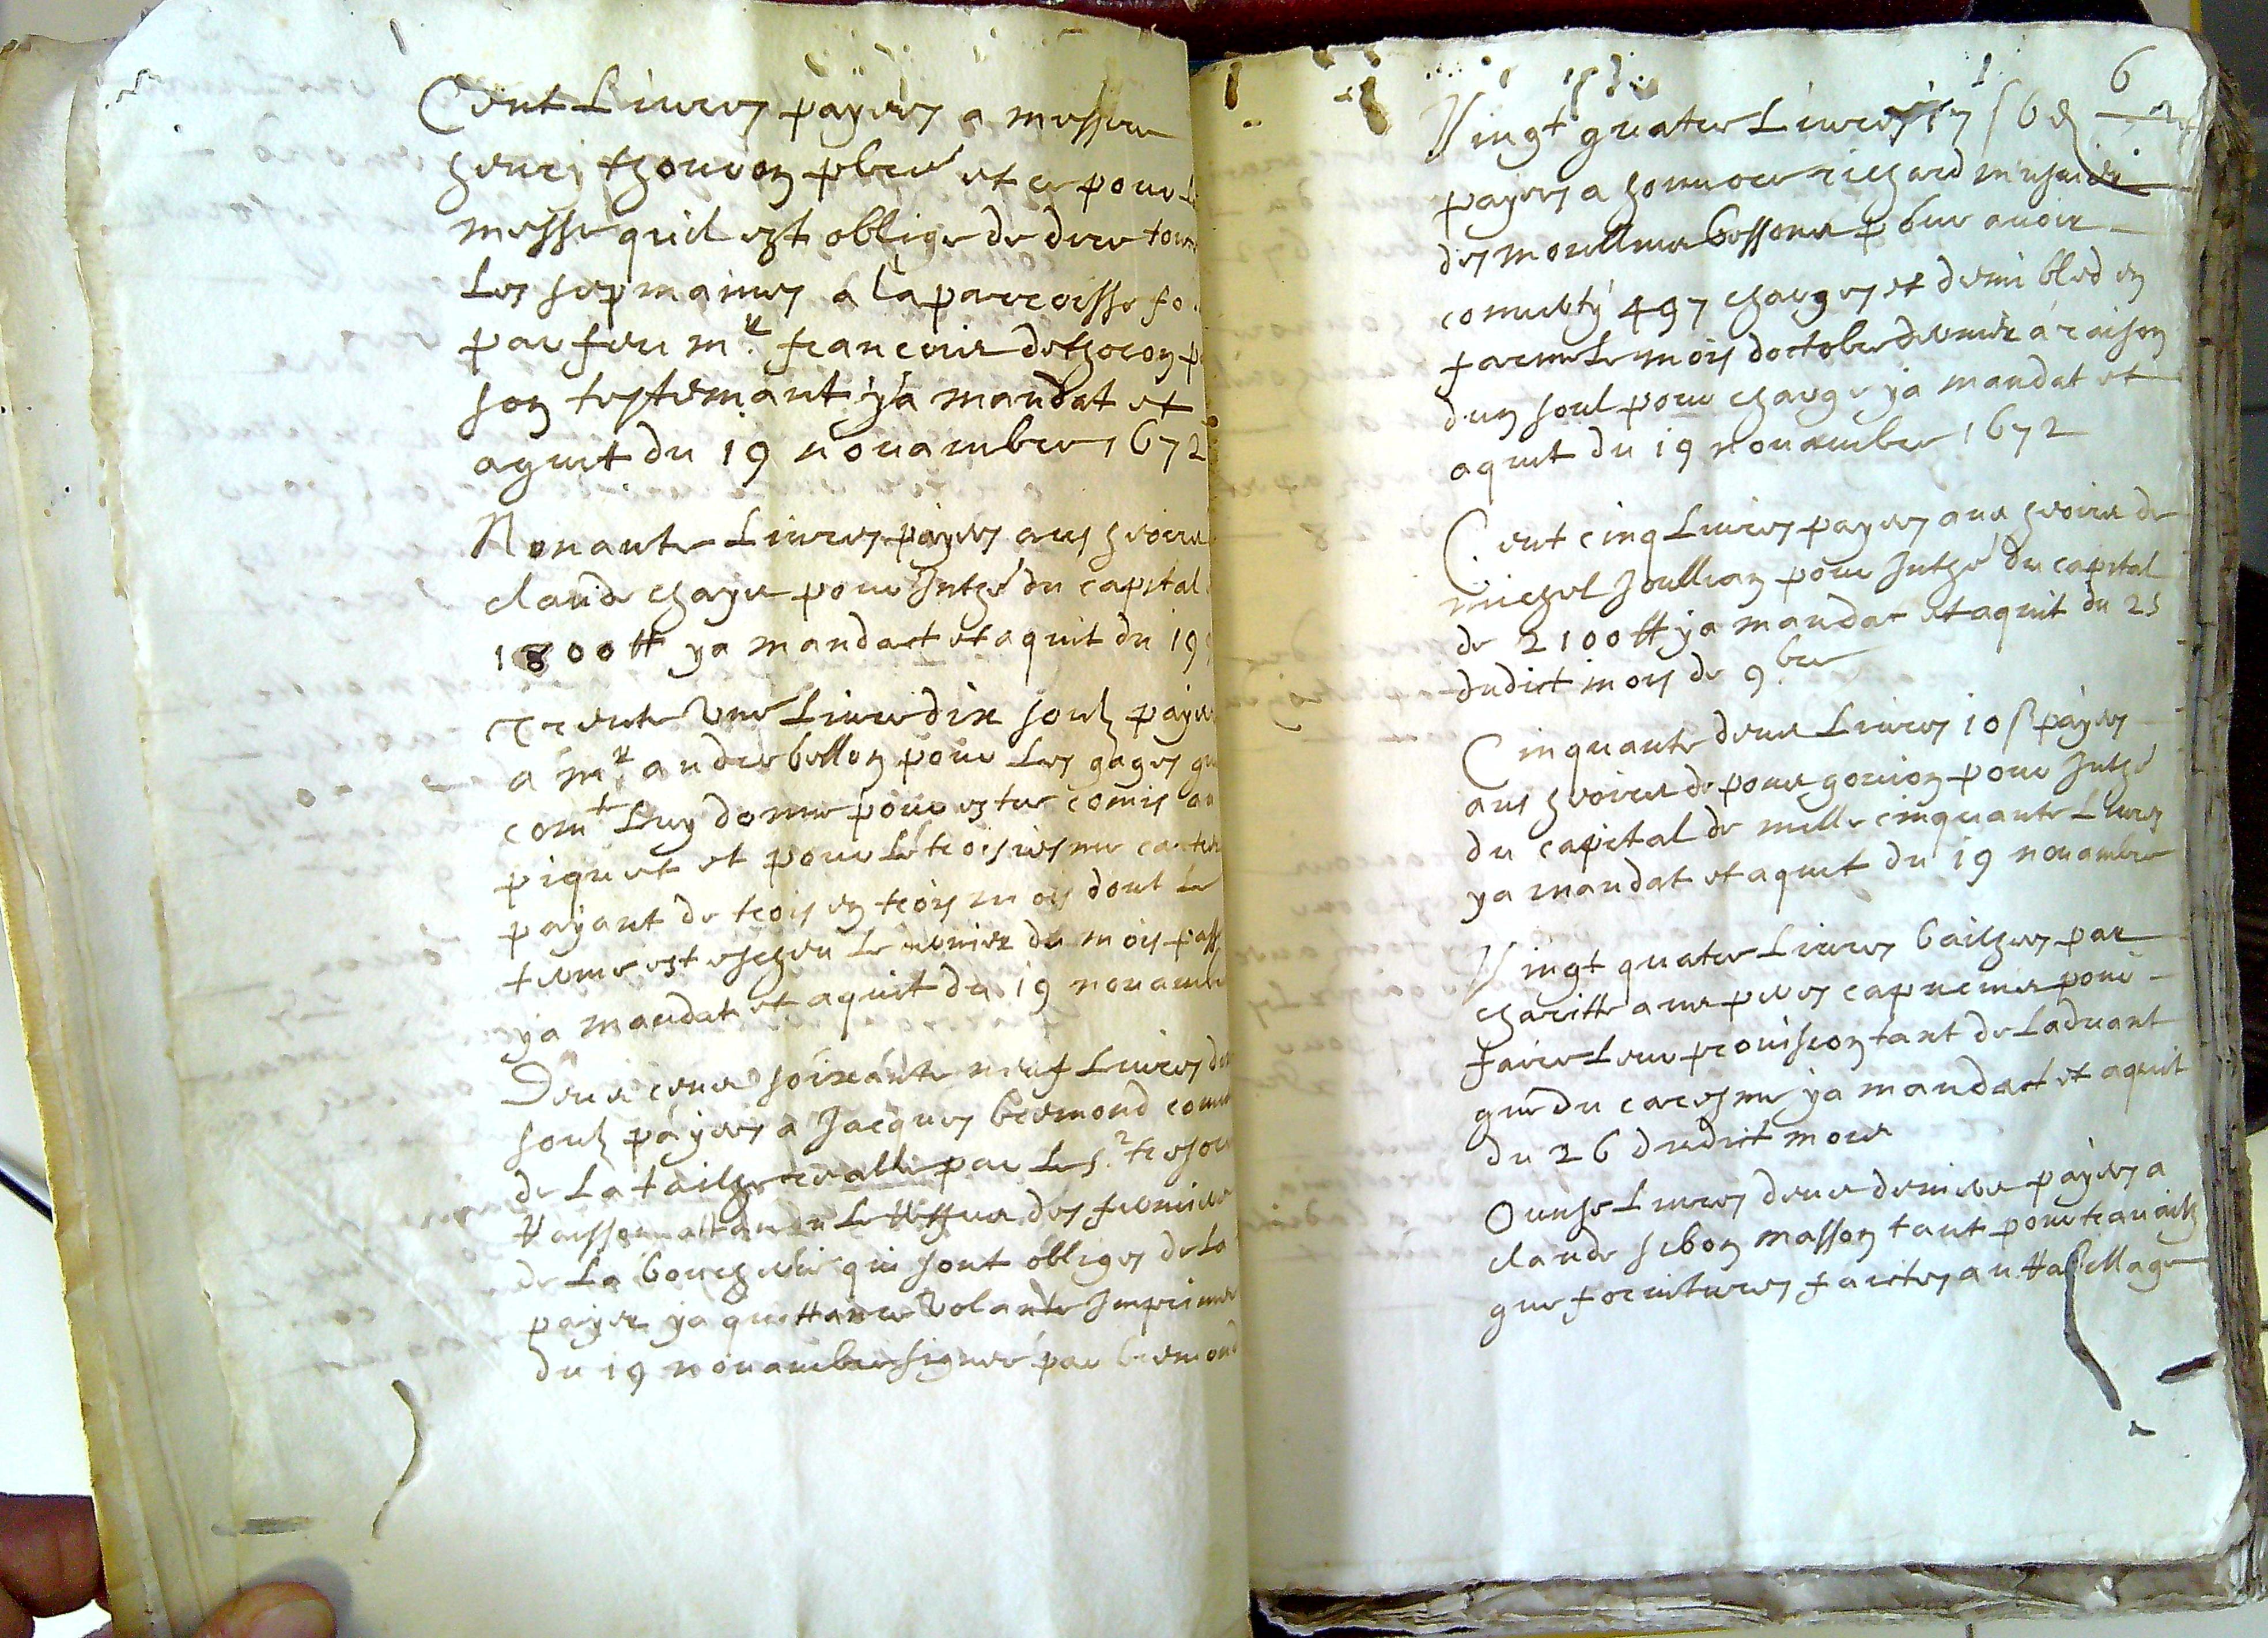 Cent Livres payés a messire
henrj thouron pbre et ce pour L
messe quil est obligé de dire tout
Les sepmaines a la parroisse fo
par feu mr. francois dethoron p
son testemant ÿ a mandat et
aquit du 19 nouambre 1672
Nonante Livres payés aus hoirs
claude chaÿx pour Inthé du capital
1800 tt ÿa mandact et aquit du 19
Trente vne Liure dix soulz payé
a mr. andre bellon pour Les gages qu
comt. Luy donne pour estre comis au
piquet et pour Le troisiesme cartie
payant de trois en trois mois dont Le
terme est escheu Le dernier du mois pass
ÿa mandat et aquit du 19 nouamb
Deux cens soixante neuf Livres d
soulz paÿes a Jacques bremond comm
de La tailhe realle par Le Sr. tresor
des fermiers
de La boucherie qui sont obliges de La
payer ÿa quittance volante Imprimee
du 19 nouambre signée par bremond
6
Vingt quatre Livres 17 s 6 d
payes a honnore richard
des moullins bessons pour auoir
conuerty 497 charges et demi bled en
farine Le mois doctobre dernier a raison
dun soul pour charge ÿa mandat et
aquit du 19 nouambre 1672
Cent cinq Livres payes aux hoirs de
michel Joullian pour Inthé du capital
de 2100 tt ÿa mandat et aquit du 25
dudict mois de 9bre
Cinquante deux Livres 10 s payes
aus hoirs de pour Inthé
du capital de mille cinquante Livres
ÿa mandat et aquit du 19 nouambre
Vingt quatre Livres bailhees par
charitté aux peres capucins pour
faire Leur prouision tant de Laduant
que du caresme ÿa mandact et aquit
du 26 dudict mois
Ounse Livres deux deniers payes a
claude sibon masson tant pour trauailz
que fornitures faictes au